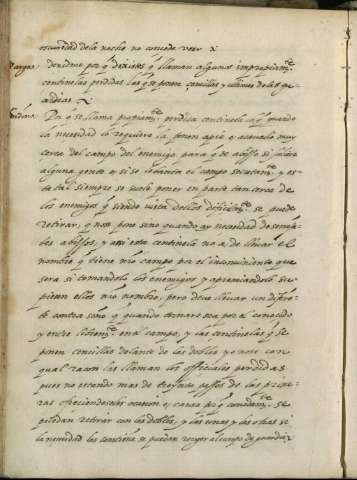 escuridad dela noche no concede ver
Vargas. Dezidme porq̃ dexistes q̃ llaman algunos impropiamẽ.
centinelas perdidas las q̃ se ponen sencillas y ultimas delas gu
ardias
Lo q̃ se llama propiamẽ. perdida centinela es quando
la necesidad lo requiere la ponen a pie o acavallo muy
cerca del campo del enemigo para q̃ de abisso si saliere
alguna gente o si se levanta el campo secretamẽ. y es
ta tal siempre se suele poner en parte tan cerca de
los enemigos q̃ siendo vista dellos dificilmẽ. se puede
retirar, q̃ no se pone sino quando ay necesidad de seme
les abissos, y assi esta centinela no a de llevar el
nombre q̃ tiene nr̃o campo por el inconviniente que
sera si tomandola los enemigos y apremiandola su
piesen ellos nr̃o nombre, pero deve llevar un difere
te contra seño q̃ quando tornare sea por el conocido
y entre librem̃. en el campo, y las centinelas q̃ se
ponen sencillas delante de las dobles yo no se con
qual razon las llaman los officiales perdidas
pues no estando mas de treynta passos de las prime
ras ofreciendoseles ocasion o causa
podran retirar con las dobles, y las unas y las otras si
la necesidad las constriñe se pueden recoger al cuerpo de guardia